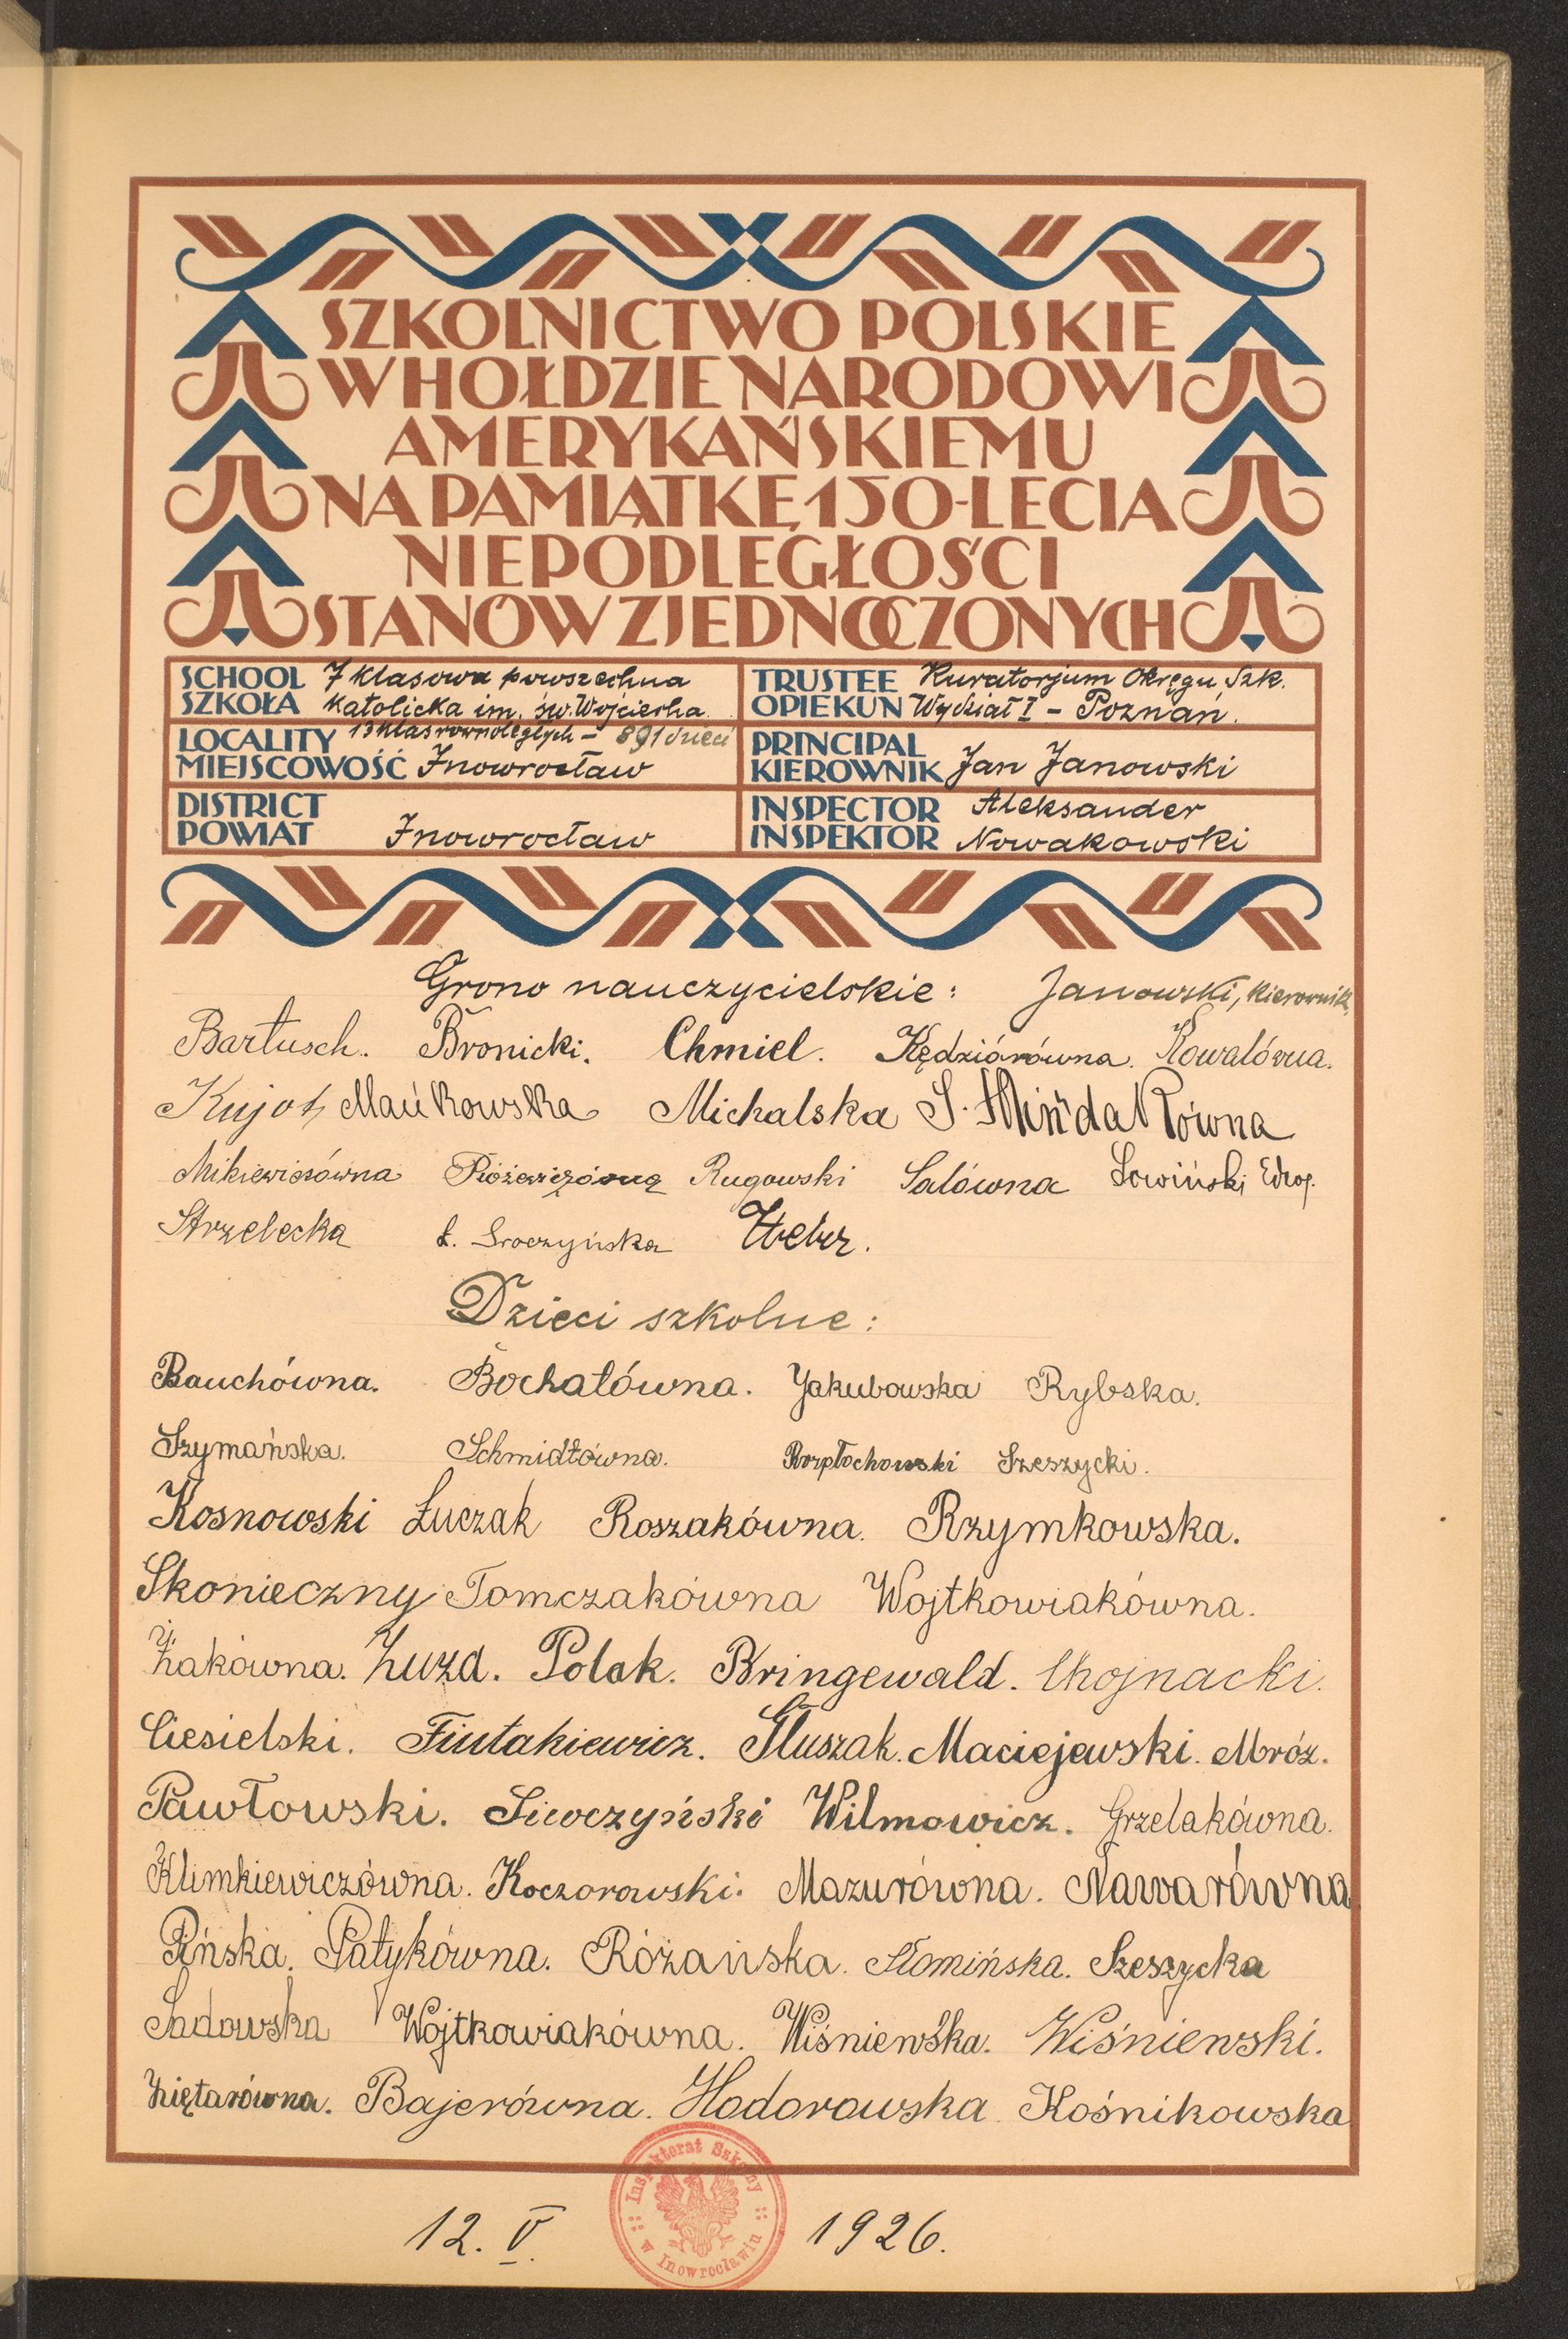 SZKOLNICTWO POLSKIE
W HOŁDZIE NARODOWI
AMERYKAŃSKIEMU
NA PAMIĄTKĘ 150-LECIA
NIEPODLEGŁOŚCI
STANÓW ZJEDNOCZONYCH
SCHOOL 7 klasowa powszechna
SZKOŁA katolicka im. św. Wojciecha
13 klas równoległych - 891 dzieci
LOCALITY
MIEJSCOWOŚĆ Inowrocław
DISTRICT
POWIAT Inowrocław
TRUSTEE Kuratorjum Okręgu Szk.
OPIEKUN Wydział I - Poznań.
PRINCIPAL
KIEROWNIK Jan Janowski
INSPECTOR Aleksander
INSPEKTOR Nowakowski
Grono nauczycielskie: Janowski, kierownik
Bartusch. Bronicki. Chmiel. Kędziórówna. Kowalówna.
Kujot, Mańkowska Michalska S. Mińdakówna
Mikiewiczówna Różewiczówna Rugowski Salówna Sowiński Edw.
Strzelecka Ł. Sroczyńska Weber.
Dzieci szkolne:
Bauchówna. Bochatówna. Jakubowska Rybska.
Szymańska. Schmidtówna. Rozpłochowski Szeszycki.
Kosnowski Łuczak Roszakówna. Rzymkowska.
Skonieczny Tomczakówna Wojtkowiakówna.
Żakówna. Żuzd. Polak. Bringewald. Chojnacki.
Ciesielski. Fiutakiewicz. Głuszak. Maciejewski. Mróz.
Pawłowski. Siwoczyński Wilmowicz. Grzelakówna.
Klimkiewiczówna. Koczorowski. Mazurówna. Nawarówna
Pińska. Patykówna. Różańska. Słomińska. Szeszycka
Sadowska Wojtkowiakówna. Wiśniewska. Wiśniewski.
Ziętarówna. Bajerówna. Hodorowska. Kośnikowska
Inspektorat Szkolny
w Inowrocławiu
12. V. 1926.